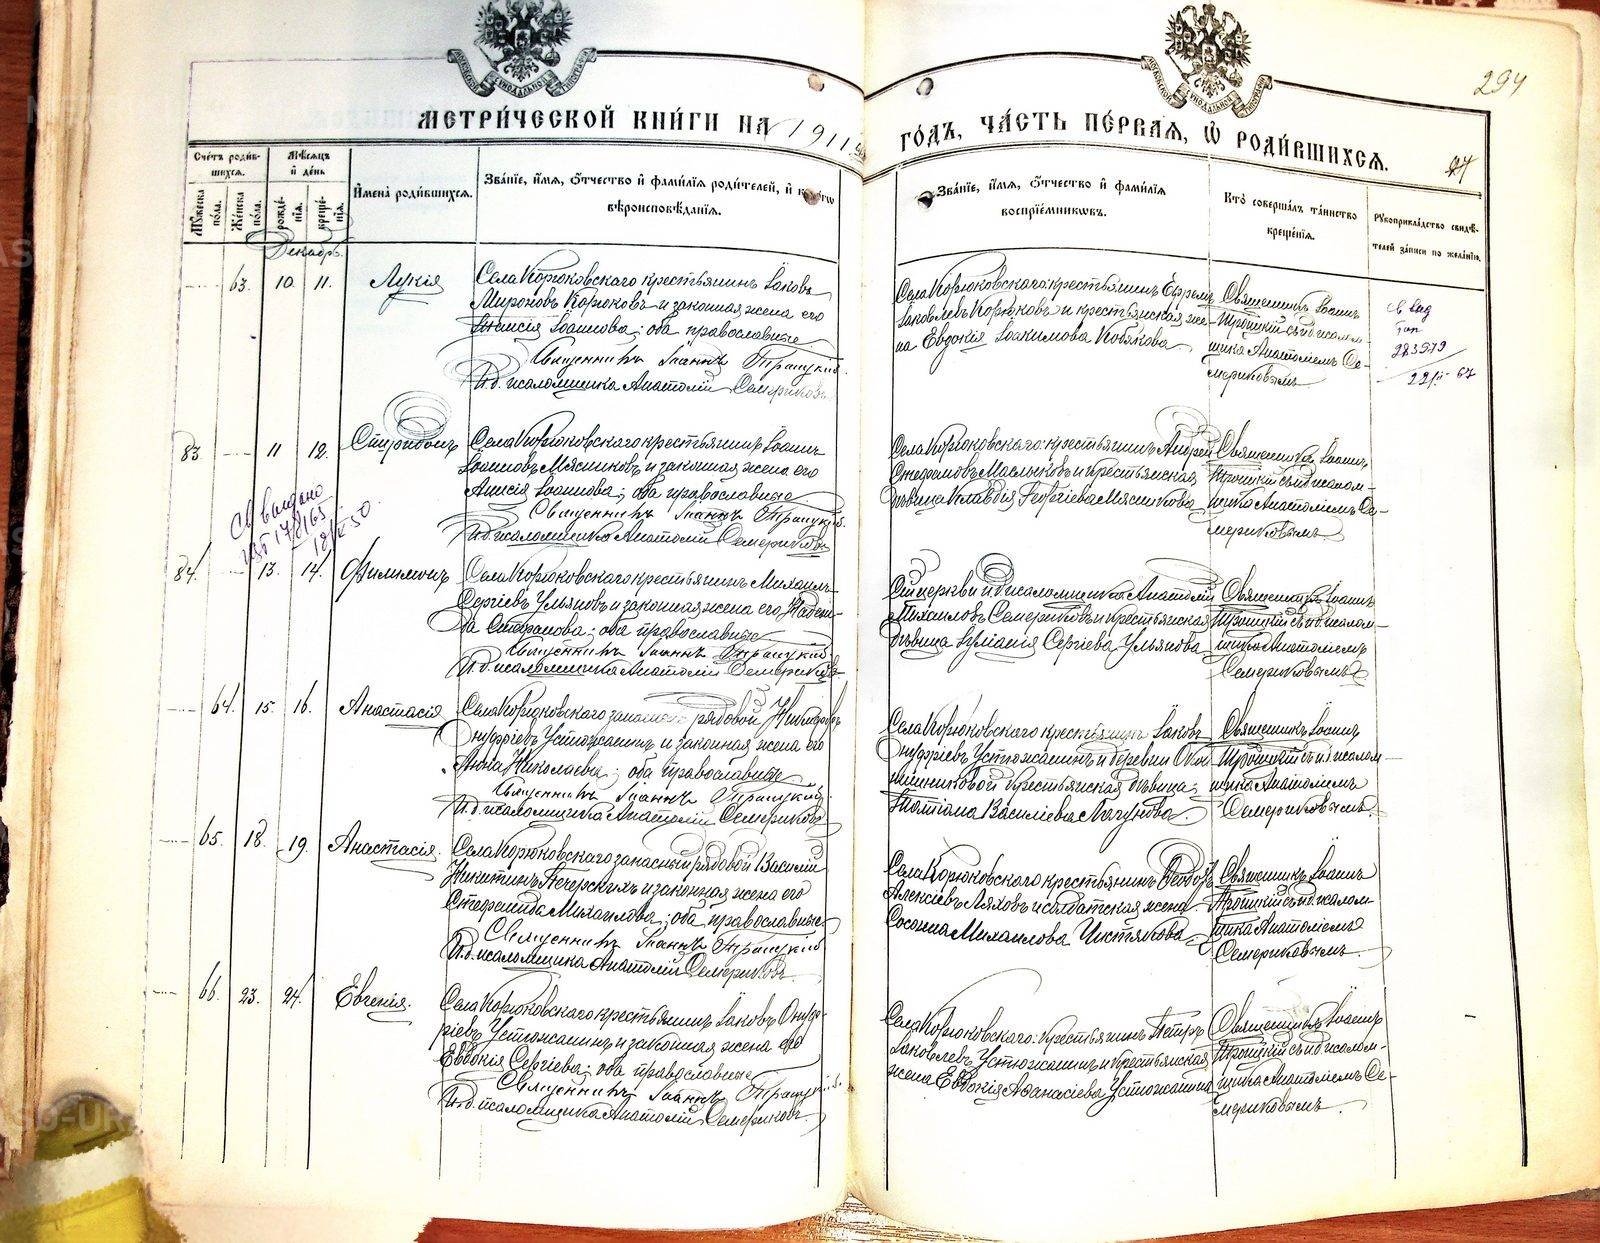 294
МЕТРИЧЕСКОЙ КНИГИ НА 1911
ГОДЪ, ЧАСТЬ ПЕРВАЯ, Ѡ РОДИВШИХСЯ.
Счетъ родив-
шихся.
Мужеска пола.
Женска пола.
Мѣсяцъ и день
рожде-
нія.
креще-
нія.
Имена родившихся.
Званіе, имя, отчество и фамилія родителей, и
вѣроисповѣданія.
Званіе, имя, отчество и фамилія
воспріемниковъ.
Кто совершалъ таинство
крещенія.
Рукоприкладство свидѣ-
телей записи по желанію.
Декабрь
63. 10. 11. Лукія
Села Корюковскаго крестьянинъ Іаковъ
Мироновъ Корюковъ и законная жена его
Іоаннова; оба православные
Священникъ Іоаннъ Троицкій.
И.д. псаломщика Анатолій Семериковъ
Села Корюковскаго крестьянинъ Ефремъ
Іаковлевъ Корюковъ и крестьянская же-
на Евдокія Іоакимова Кобякова
Священникъ Іоаннъ
Троицкій съ и.д. псалом-
щика Анатоліемъ Се-
мериковымъ
83. 11 12. Спиридонъ
Села Корюковскаго крестьянинъ Іоаннъ
Іоанновъ Мясниковъ и законная жена его
Анисія Іоаннова; оба православные
Священникъ Іоаннъ Троицкій.
И.д. псаломщика Анатолій Семериковъ
Села Корюковскаго крестьянинъ Андрей
Маслыковъ и крестьянская
дѣвица Клавдія Георгіева Мясникова
Священникъ Іоаннъ
Троицкій съ и.д. псалом-
щика Анатоліемъ Се-
мериковымъ
84. 13. 14. Филимонъ
Села Корюковскаго крестьянинъ Михаилъ
Сергіевъ Ульяновъ и законная жена его Надеж-
да Стефанова; оба православные
Священникъ Іоаннъ Троицкій
И.д. псаломщика Анатолій Семериковъ
церкви и.д. псаломщика Анатолій
Михаиловъ Семериковъ и крестьянская
дѣвица Іуліанія Сергіева Ульянова
Священникъ Іоаннъ
Троицкій съ и.д. псалом-
щика Анатоліемъ
Семериковымъ
64. 15. 16. Анастасія
Села Корюковскаго запасный рядовой Никифоръ
Онуфріевъ Устюжанинъ и законная жена его
Анна Николаева; оба православные
Священникъ Іоаннъ Троицкій.
И.д. псаломщика Анатолій Семериковъ
Села Корюковскаго крестьянинъ Іаковъ
Онуфріевъ Устюжанинъ и деревни
крестьянская дѣвица
Татіана Василіева Лагунова.
Священникъ Іоаннъ
Троицкій съ и.д. псалом-
щика Анатоліемъ
Семериковымъ.
65. 18. 19. Анастасія.
Села Корюковскаго запасный рядовой Василій
Никитинъ Печерскихъ и законная жена его
Стефанида Михаилова; оба православные
Священникъ Іоаннъ Троицкій
И.д. псаломщика Анатолій Семериковъ
Села Корюковскаго крестьянинъ Ѳеодоръ
Алексіевъ Ляховъ и солдатская жена
Сосанна Михаилова Чистякова
Священникъ Іоаннъ
Троицкій съ и.д. псалом-
щика Анатоліемъ
Семериковымъ.
66. 23. 24. Евгенія.
Села Корюковскаго крестьянинъ Іаковъ Онуф-
ріевъ Устюжанинъ и законная жена его
Евдокія Сергіева; оба православные
Священникъ Іоаннъ Троицкій.
И.д. псаломщика Анатолій Семериковъ.
Села Корюковскаго крестьянинъ Петръ
Іаковлевъ Устюжанинъ и крестьянская
жена Евдокія Аѳанасіева Устюжанина
Священникъ Іоаннъ
Троицкій съ и.д. псалом-
щика Анатоліемъ Се-
мериковымъ.